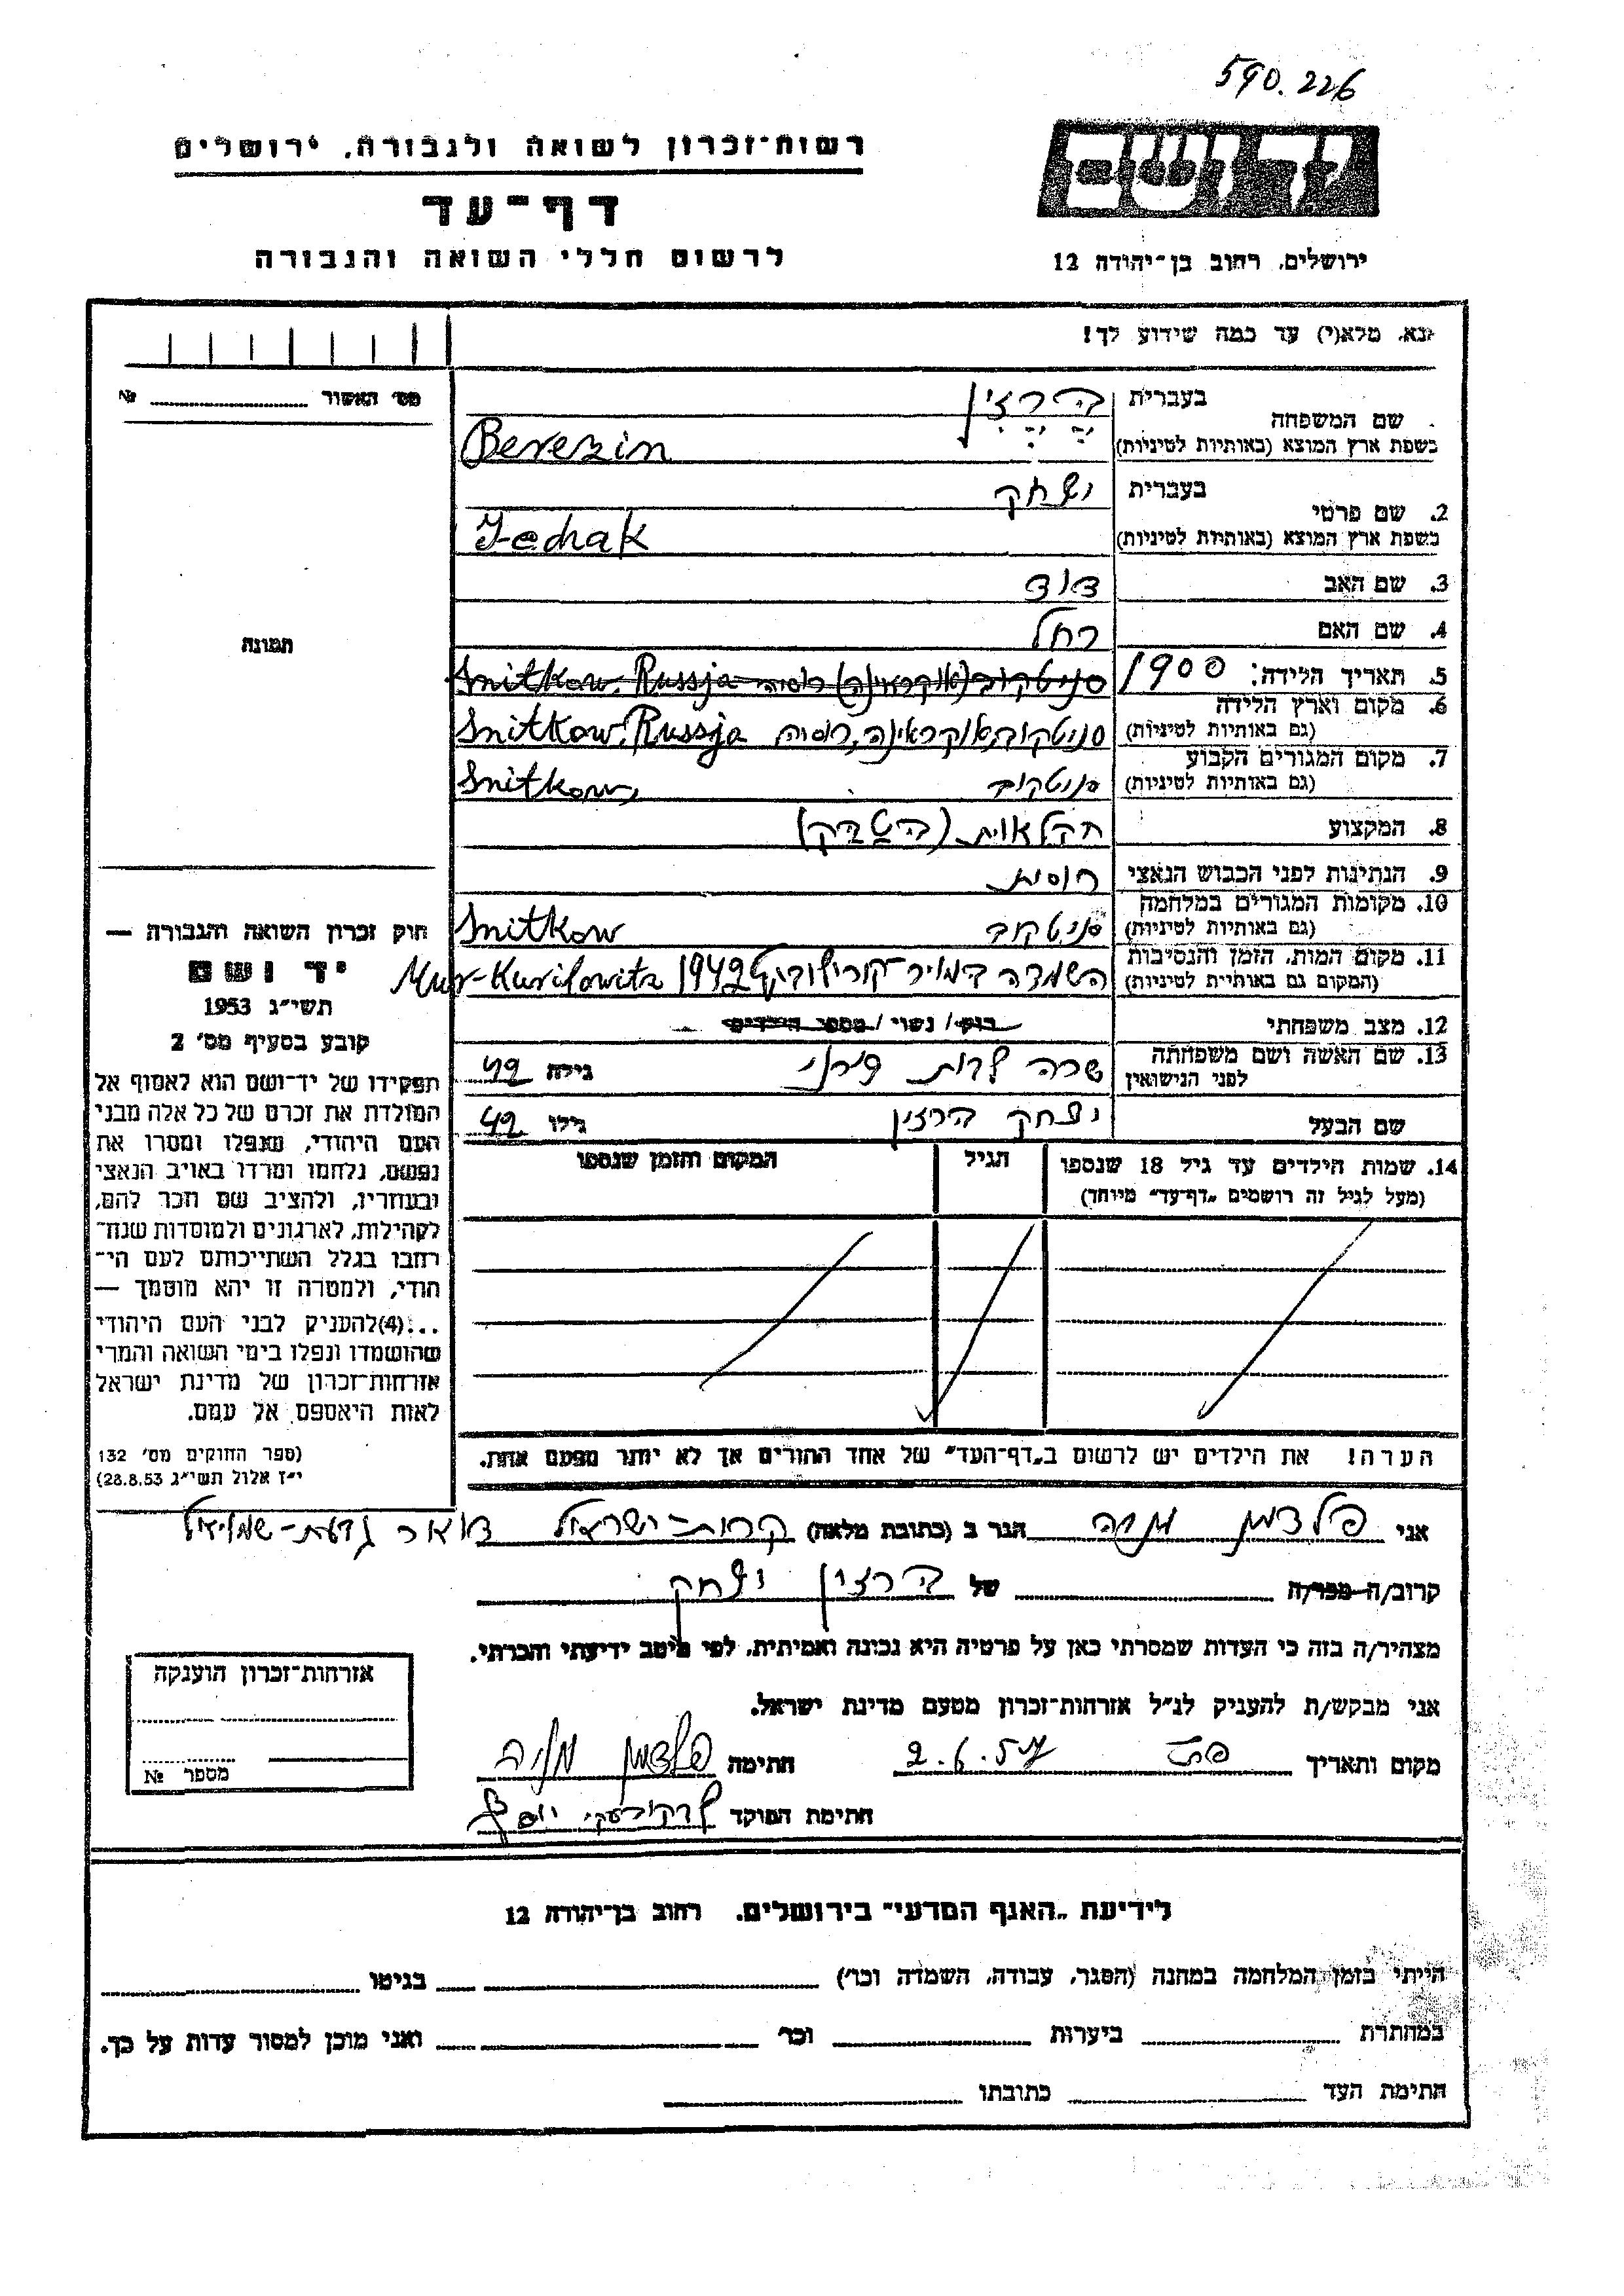 590.226
רשות־זכרון לשואה ולגבורה, ירושלים
דף־עד
לרשום חללי השואה והגבורה
ירושלים, רחוב בן־יהודה 12
נא, מלא(י) עד כמה שידוע לך!
מס׳ האשור №
שם המשפחה בעברית ברזין
בשפת ארץ המוצא (באותיות לטיניות) Berezin
2. שם פרטי בעברית יצחק
בשפת ארץ המוצא (באותיות לטיניות) Jechak
3. שם האב דוד
4. שם האם רחל
תמונה
5. תאריך הלידה: 1900 סניטקוב (אוקראינה) רוסיה Snitkow. Russja
6. מקום וארץ הלידה
(גם באותיות לטיניות) סניטקוב, אוקראינה, רוסיה Snitkow, Russja
7. מקום המגורים הקבוע
(גם באותיות לטיניות) סניטקוב Snitkow
8. המקצוע חקלאות (בטבק)
9. הנתינות לפני הכבוש הנאצי רוסית
10. מקומות המגורים במלחמה
(גם באותיות לטיניות) סניטקוב Snitkow
11. מקום המות, הזמן והנסיבות
(המקום גם באותיות לטיניות) השמדה במויר־קורילוביץ 1942 Mur-Kurilowitz
12. מצב משפחתי רווק/ נשוי / מספר הילדים
13. שם האשה ושם משפחתה
לפני הנישואין שרה לבית גילה 42
שם הבעל יצחק ברזין גילו 42
14. שמות הילדים עד גיל 18 שנספו הגיל המקום והזמן שנספו
(מעל לגיל זה רושמים „דף־עד״ מיוחד)
הערה! את הילדים יש לרשום ב„דף־העד״ של אחד ההורים אך לא יותר מפעם אחת.
חוק זכרון השואה והגבורה —
יד ושם
תשי״ג 1953
קובע בסעיף מס׳ 2
תפקידו של יד־ושם הוא לאסוף אל
המולדת את זכרם של כל אלה מבני
העם היהודי, שנפלו ומסרו את
נפשם, נלחמו ומרדו באויב הנאצי
ובעוזריו, ולהציב שם וזכר להם,
לקהילות, לארגונים ולמוסדות שנח־
רחבו בגלל השתייכותם לעם הי־
הודי, ולמטרה זו יהא מוסמך —
...(4)להעניק לבני העם היהודי
שהושמדו ונפלו בימי השואה והמרי
אזרחות־זכרון של מדינת ישראל
לאות היאספם אל עמם.
(ספר החוקים מס׳ 132
י״ז אלול תשי״ג 28.8.53)
אני פלדמן מניה הגר ב (כתובת מלאה) קרית־ישראל דואר גבעת־שמואל
קרוב/ה מכר/ה של ברזין יצחק
מצהיר/ה בזה כי העדות שמסרתי כאן על פרטיה היא נכונה ואמיתית, לפי מיטב ידיעתי והכרתי.
אני מבקש/ת להעניק לנ״ל אזרחות־זכרון מטעם מדינת ישראל.
מקום ותאריך 2.6.57 חתימה פלדמן מניה
חתימת הפוקד
אזרחות־זכרון הוענקה
מספר №
לידיעת „האגף המדעי״ בירושלים, רחוב בן־יהודה 12
הייתי בזמן המלחמה במחנה (הסגר, עבודה, השמדה וכו׳) בגיטו
במחתרת ביערות וכו׳ ואני מוכן למסור עדות על כך.
חתימת העד כתובתו